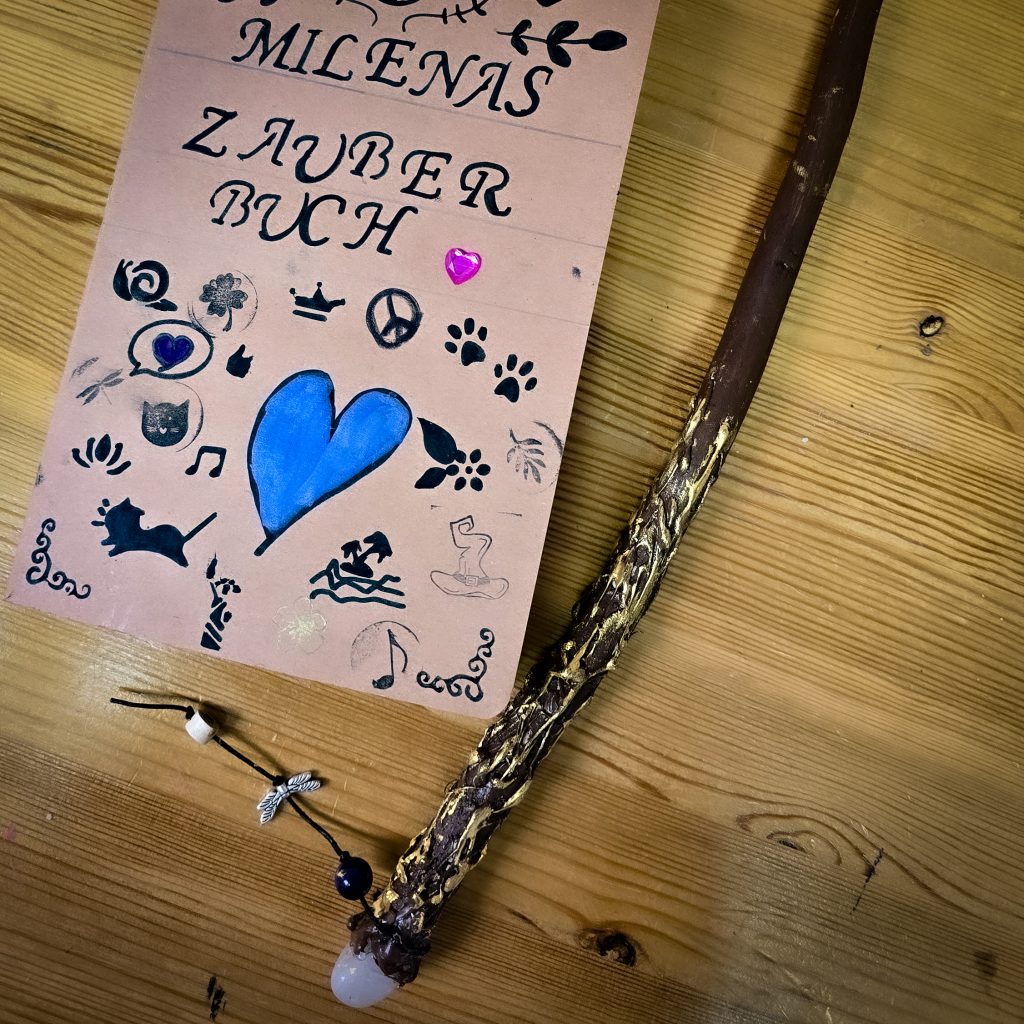 MILENAS
ZAUBER
BUCH